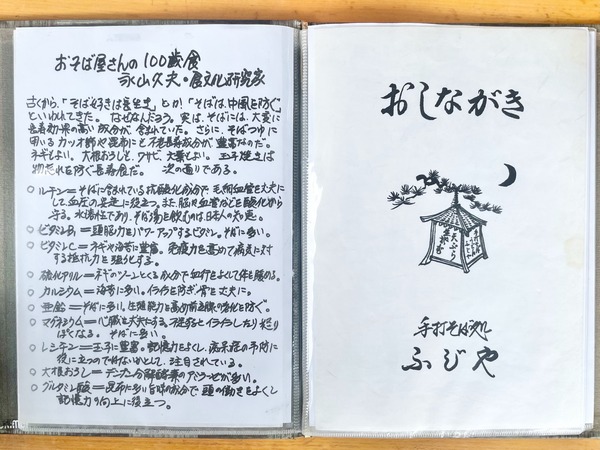 おそば屋さんの100歳食
永山久夫・食文化研究家
古くから、「そば好きは長生き」とか「そばは、中風を防ぐ」
といわれてきた。なぜなんだろう。実は、そばには、大変に
長寿効果の高い成分が、含まれていた。さらに、そばつゆに
用いるカツオ節や昆布にも不老長寿成分が豊富なのだ。
ネギもよい。大根おろしも、ワサビ、大葉もよい。玉子焼きは
物忘れを防ぐ長寿食だ。 次の通りである。
○ルチン=そばに含まれている抗酸化成分で毛細血管を丈夫に
して、血圧の安定に役立つ。また、脳の血管などを酸化から
守る。水溶性であり、そば湯を飲むのは日本人の知恵。
○ビタミンB₁=頭脳力をパワーアップするビタミン。そばに多い。
○ビタミンC=ネギや海苔に豊富。免疫力を高めて病気に対
する抵抗力を強化する。
○硫化アリル=ネギのツーンとくる成分で血行をよくして体を暖める。
○カルシウム=海苔に多い。イライラを防ぎ、骨を丈夫に。
○亜鉛=そばに多い。生殖能力を高め前立腺の老化を防ぐ。
○マグネシウム=心臓を丈夫にする。不足するとイライラしたり怒り
ぽくなる。そばに多い。
○レシチン=玉子に豊富。記憶力をよくし、痴呆症の予防に
役に立つのではないかとして、注目されている。
○大根おろし=デンプン分解酵素のアミラーゼが多い。
○グルタミン酸=昆布に多い旨味の成分で頭の働きをよくし
記憶力の向上に役立つ。
おしながき
天ぷら
手打そば処
ふじや